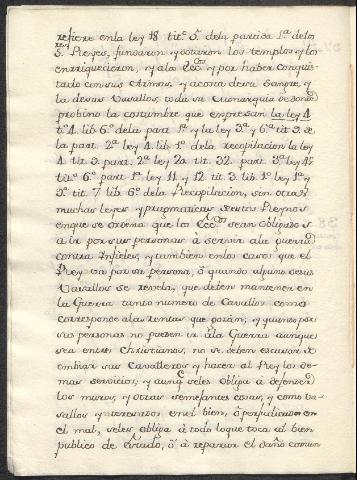 refiere enla ley 18 titº 5º dela partida 1ª delos
Sres Reyes, fundaron y dotaron los templos y los
enriquecieron, y alos Eccos y por haber conquis-
tado con sus Armas, y acosta de su Sangre, y
la de sus Vasallos, toda su Monarquia de donde
probino la costumbre que expresan la ley 4
tº 4. lib 6º dela part. 1ª y la ley 3ª y 6ª tit 3. de
la part. 2ª ley 4. lib 1º dela recopilacion la ley
4. tit. 3. part. 2ª ley 20. tit 32. part. 3ª ley 4ª
titº 6º part. 1ª ley 11 y 12 tit. 3. lib. 1º ley 1ª y
3ª tit. 7 lib 6º dela Recopilacion, sin otras
muchas leyes y pragmaticas de estos Reynos
enque se ordena que los Eccos sean obligados
a ir por sus personas a servir ala guerra
contra Infieles, y tambien enlos casos que el
Rey va por su persona, ó quando alguno desus
Vasallos se revela, que deben mantener en
la Guerra tanto numero de Cavallos como
corresponde alas rentas que gozan; y quando por
sus personas no pueden ir ála Guerra aunque
sea entre Christianos, no se deben escusar de
embiar sus Cavalleros y hacer al Rey los de-
mas servicios; y aunq seles obliga á defender
los muros, y otras semejantes cosas, y como va-
sallos y interesados en el bien, ó perjudicados en
el mal, seles obliga á todo loque toca al bien
publico de Estado, ó á reparar el daño comun